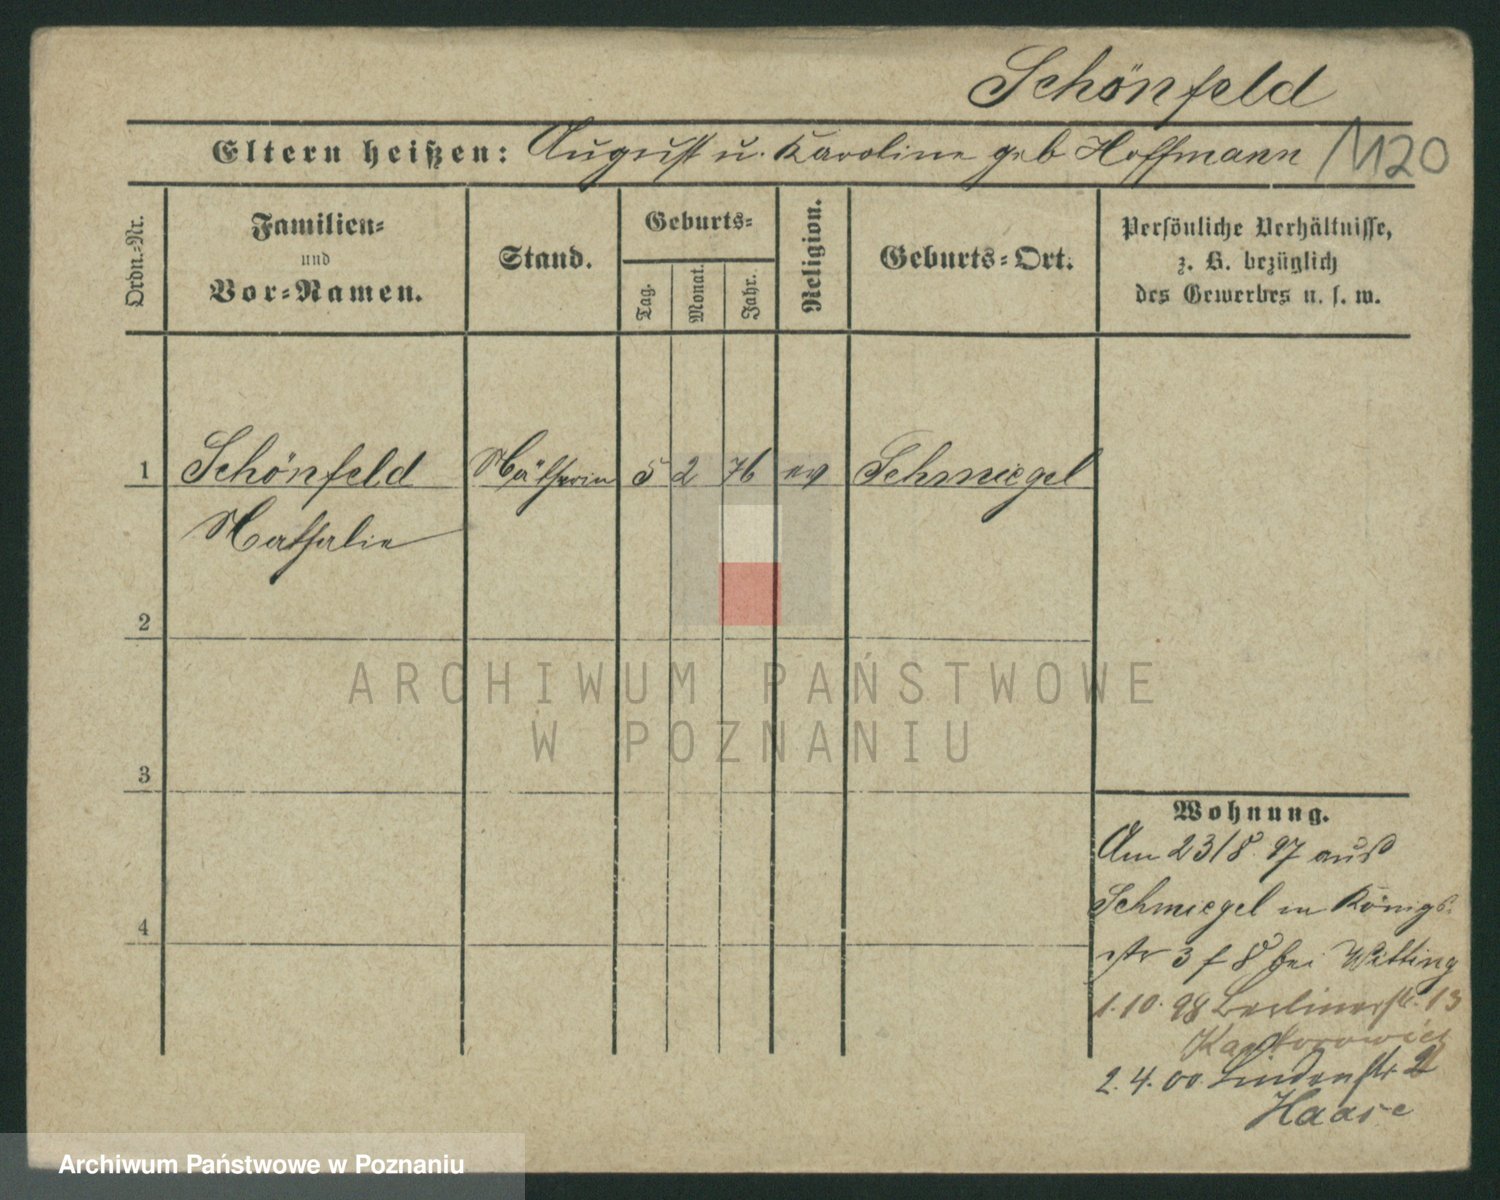 Schönfeld
Eltern heißen: August u. Karoline geb Hoffmann
1120
Ordn.-Nr.
Familien-
und
Vor-Namen.
Stand.
Geburts-
Tag.
Monat.
Jahr.
Religion.
Geburts-Ort.
Persönliche Verhältnisse,
z. B. bezüglich
des Gewerbes u. s. w.
1 Schönfeld Nätherin 5 2 76 ev Schmiegel
Nathalie
2
3
4
ARCHIWUM PAŃSTWOWE
W POZNANIU
Wohnung.
Am 23/8. 97 aus
Schmiegel in Königs-
str 3 f 8 bei Witting
1.10.98 Berlinerstr. 13
Kantorowicz
2.4.00 Lindenstr 2
Haase
Archiwum Państwowe w Poznaniu